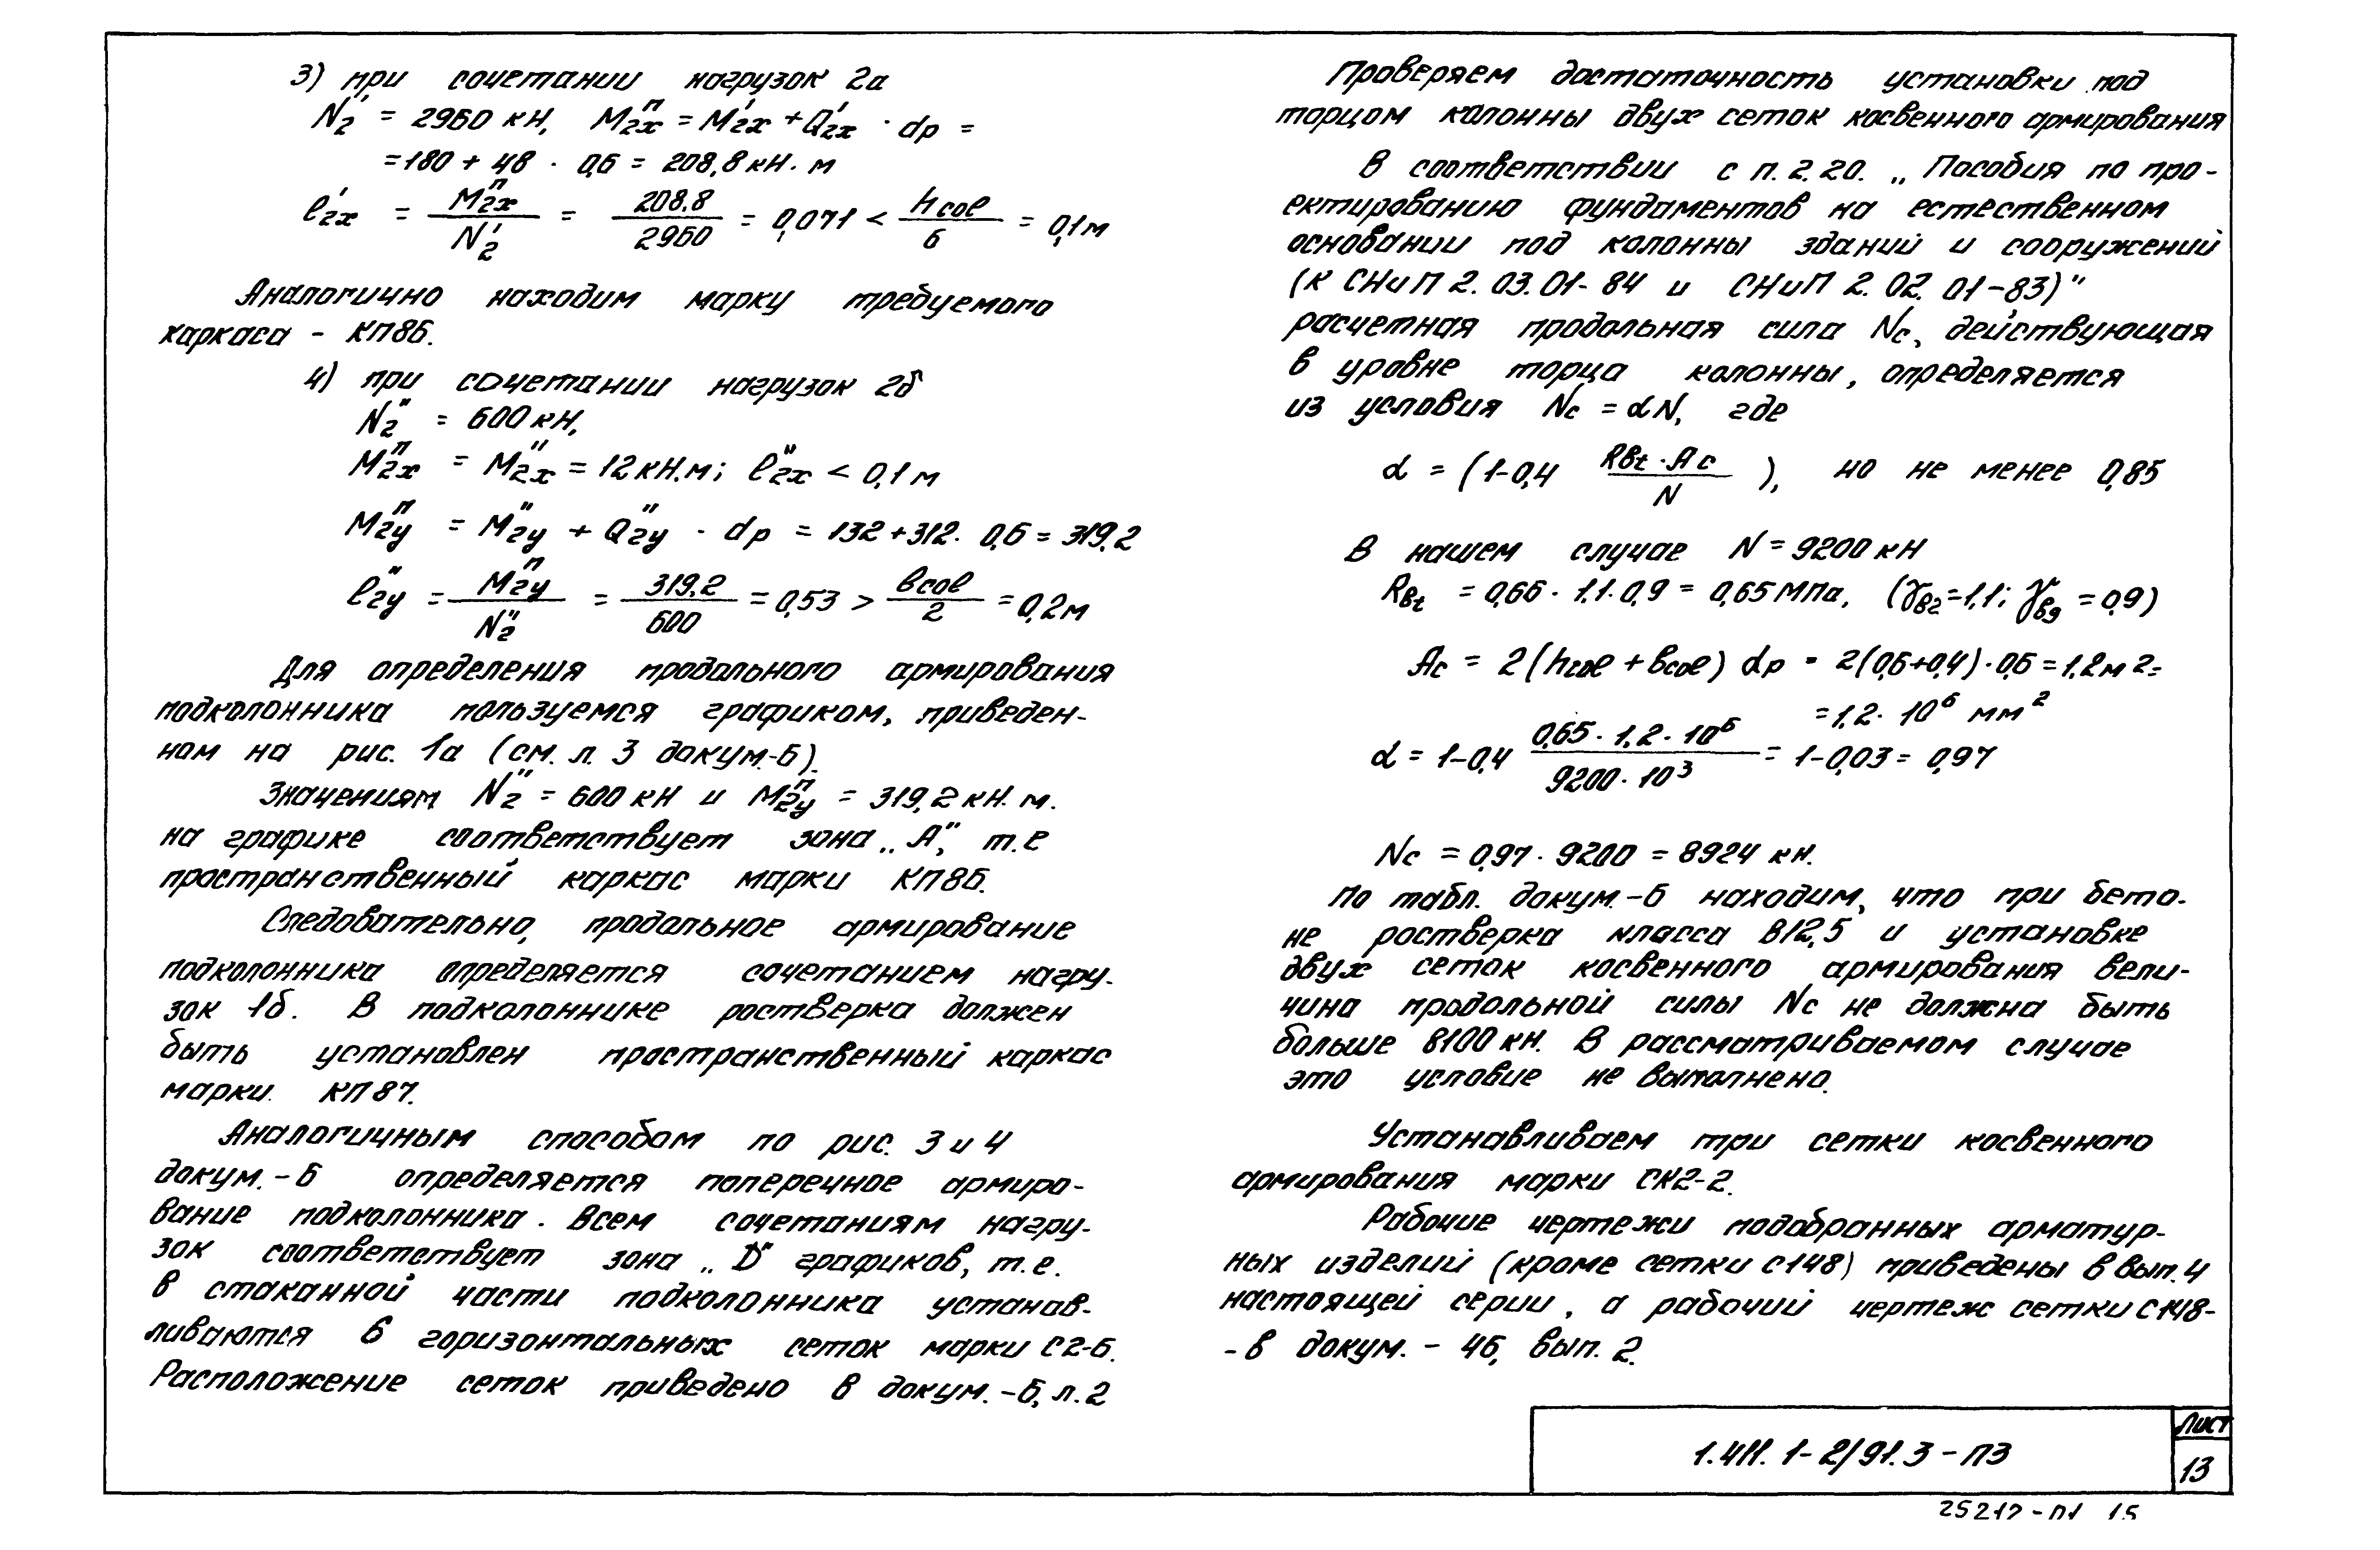 3) при сочетании нагрузок 2а
N₂' = 2960 кН, M₂ₓⁿ = M₂ₓ' + Q₂ₓ' · dp =
= 180 + 48 · 0,6 = 208,8 кН·м
e₂ₓ' = M₂ₓⁿ / N₂' = 208,8 / 2960 = 0,071 < hcol / 6 = 0,1 м
Аналогично находим марку требуемого
каркаса – КП86.
4) при сочетании нагрузок 2б
N₂" = 600 кН,
M₂ₓⁿ = M₂ₓ" = 12 кН.м; e₂ₓ" < 0,1 м
M₂yⁿ = M₂y" + Q₂y" · dp = 132 + 312 · 0,6 = 319,2
e₂y" = M₂yⁿ / N₂" = 319,2 / 600 = 0,53 > bcol / 2 = 0,2 м
Для определения продольного армирования
подколонника пользуемся графиком, приведен-
ном на рис. 1а (см. л. 3 докум.-6).
Значениям N₂" = 600 кН и M₂yⁿ = 319,2 кН.м.
на графике соответствует зона „А", т.е
пространственный каркас марки КП86.
Следовательно, продольное армирование
подколонника определяется сочетанием нагру-
зок 1б. В подколоннике ростверка должен
быть установлен пространственный каркас
марки. КП87.
Аналогичным способом по рис. 3 и 4
докум.-6 определяется поперечное армиро-
вание подколонника. Всем сочетаниям нагру-
зок соответствует зона „D" графиков, т.е.
в стаканной части подколонника устанав-
ливаются 6 горизонтальных сеток марки С2-6.
Расположение сеток приведено в докум.-6, л. 2
Проверяем достаточность установки под
торцом колонны двух сеток косвенного армирования
В соответствии с п. 2.20. „Пособия по про-
ектированию фундаментов на естественном
основании под колонны зданий и сооружений
(к СНиП 2.03.01-84 и СНиП 2.02.01-83)"
расчетная продольная сила Nc, действующая
в уровне торца колонны, определяется
из условия Nc = αN, где
α = (1-0,4 Rbt·Ac / N), но не менее 0,85
В нашем случае N = 9200 кН
Rbt = 0,66 · 1,1 · 0,9 = 0,65 МПа, (γb2 = 1,1; γb9 = 0,9)
Ac = 2(hcol + bcol) dp = 2(0,6+0,4) · 0,6 = 1,2 м² =
= 1,2 · 10⁶ мм²
α = 1-0,4 0,65 · 1,2 · 10⁶ / 9200 · 10³ = 1-0,03 = 0,97
Nc = 0,97 · 9200 = 8924 кН.
По табл. докум.-6 находим, что при бето-
не ростверка класса В12,5 и установке
двух сеток косвенного армирования вели-
чина продольной силы Nc не должна быть
больше 8100 кН. В рассматриваемом случае
это условие не выполнено.
Устанавливаем три сетки косвенного
армирования марки СК2-2.
Рабочие чертежи подобранных арматур-
ных изделий (кроме сетки С148) приведены в вып. 4
настоящей серии, а рабочий чертеж сетки С148-
- в докум. – 46, вып. 2.
1.411.1-2/91.3-ПЗ
Лист
13
25217-01 15